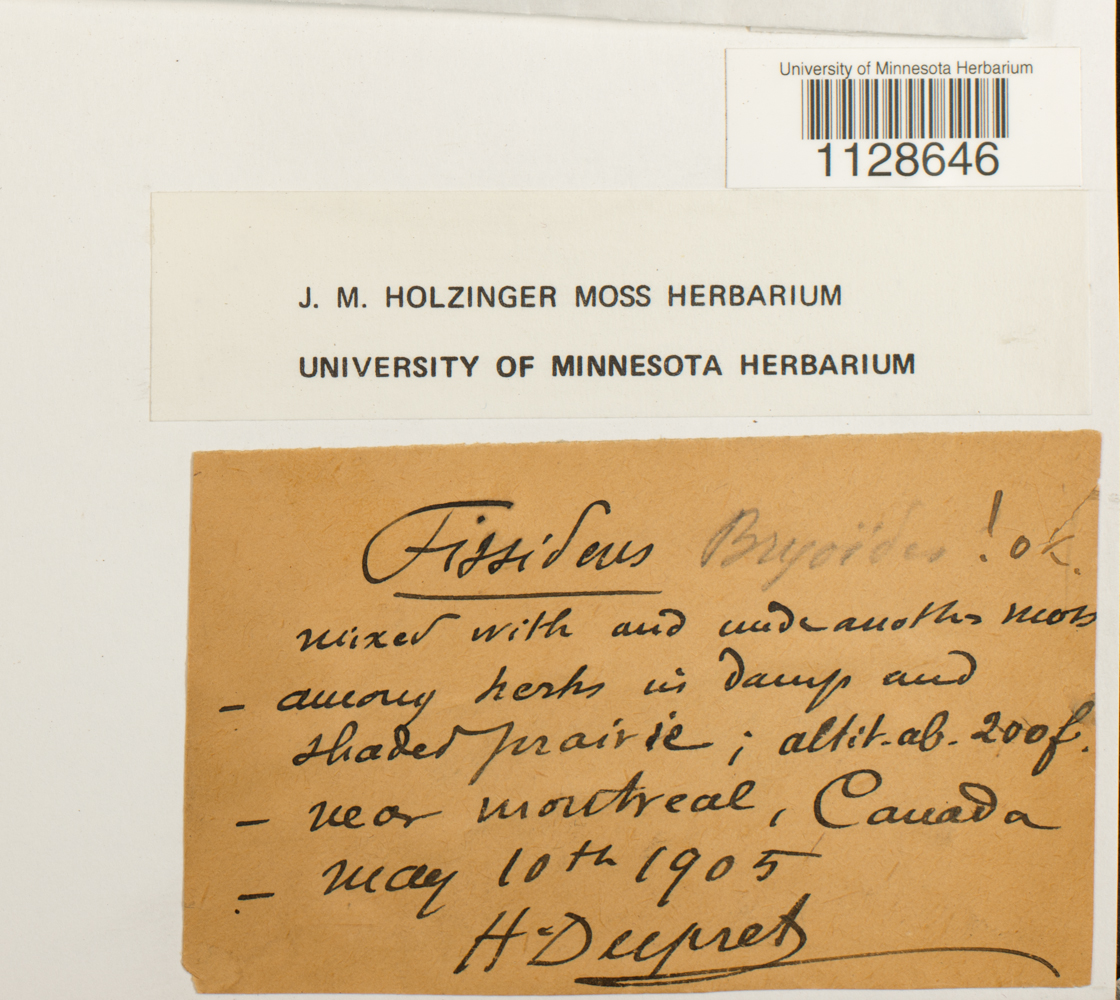 University of Minnesota Herbarium
1128646
J. M. HOLZINGER MOSS HERBARIUM
UNIVERSITY OF MINNESOTA HERBARIUM
Fissidens Bryoïdes ! ok.
mixed with and under another moss
- among herbs in damp and
shaded prairie ; altit. ab. 200f.
- near montreal, Canada
- may 10th 1905
H. Dupret